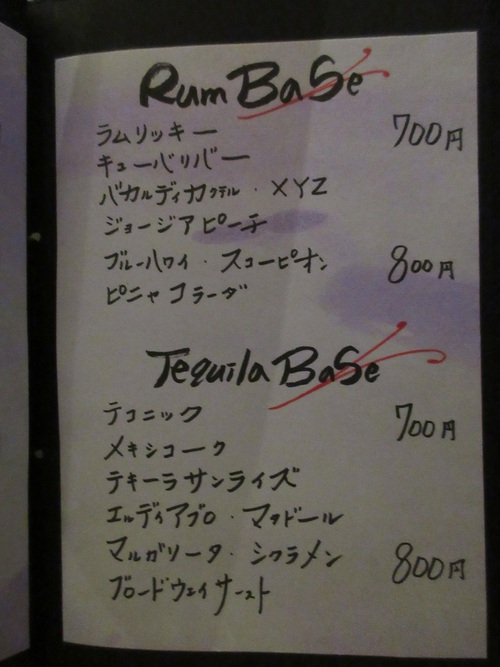 Rum BaSe
ラムリッキー 700円
キューバリバー
バカルディカクテル・XYZ
ジョージアピーチ
ブルーハワイ・スコーピオン 800円
ピニャコラーダ
Tequila BaSe
テコニック 700円
メキシコーク
テキーラサンライズ
エルディアブロ・マタドール
マルガリータ・シクラメン 800円
ブロードウェイサースト